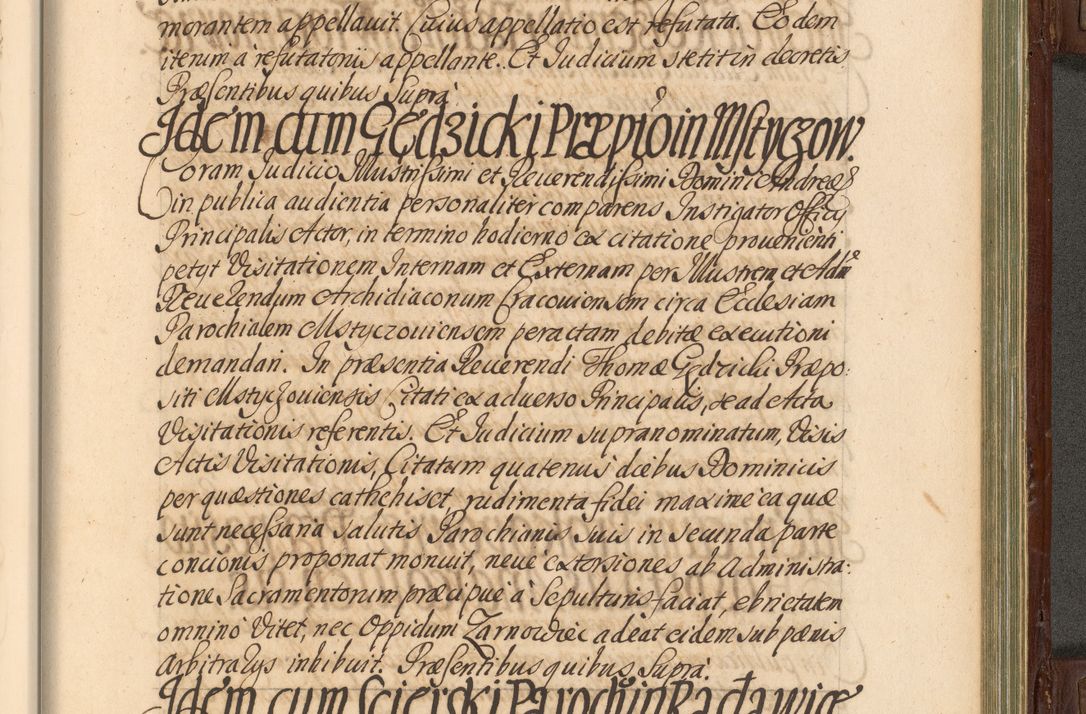 morantem appellavit. Cuius appellatio est refutata. Eodem
iterum a refutatorijs appellante. Et Judicium stetit in decretis
Præsentibus quibus Supra.
Idem cum Gędzicki Præpto in Mstyczow.
Coram Judicio Illustrissimi et Reuerendissimi Domini Andreæ
in publica audientia personaliter comparens Instigator Officÿ
Principalis Actor, in termino hodierno ex citatione prouenienti
petyt Visitationem Internam et Externam per Illustrem et Adm
Reuerendum Archidiaconum Cracouiensem circa Ecclesiam
Parochialem Mstyczouiensem peractam debitæ executioni
demandari. In præsentia Reuerendi Thomæ Gędzicki Præpo:
siti Mstyczouiensis Citati ex aduerso Principalis, se ad Acta
Visitationis referentis. Et Judicium supranominatum, Visis
Actis Visitationis, Citatum quatenus diebus Dominicis
per quæstiones cathehiset, rudimenta fidei maxime ea quæ
sunt necessaria Salutis Parochianis suis in secunda parte
concionis proponat monuit, neue extorsiones ab Administra:
tione Sacramentorum præcipue a Sepulturis faciat, ebrietatem
omnino Vitet, nec Oppidum Zarnowiec adeat eidem sub pænis
Arbitralÿs inhibuit. Præsentibus quibus Supra.
Idem cum Scierski Paroch in Racławice